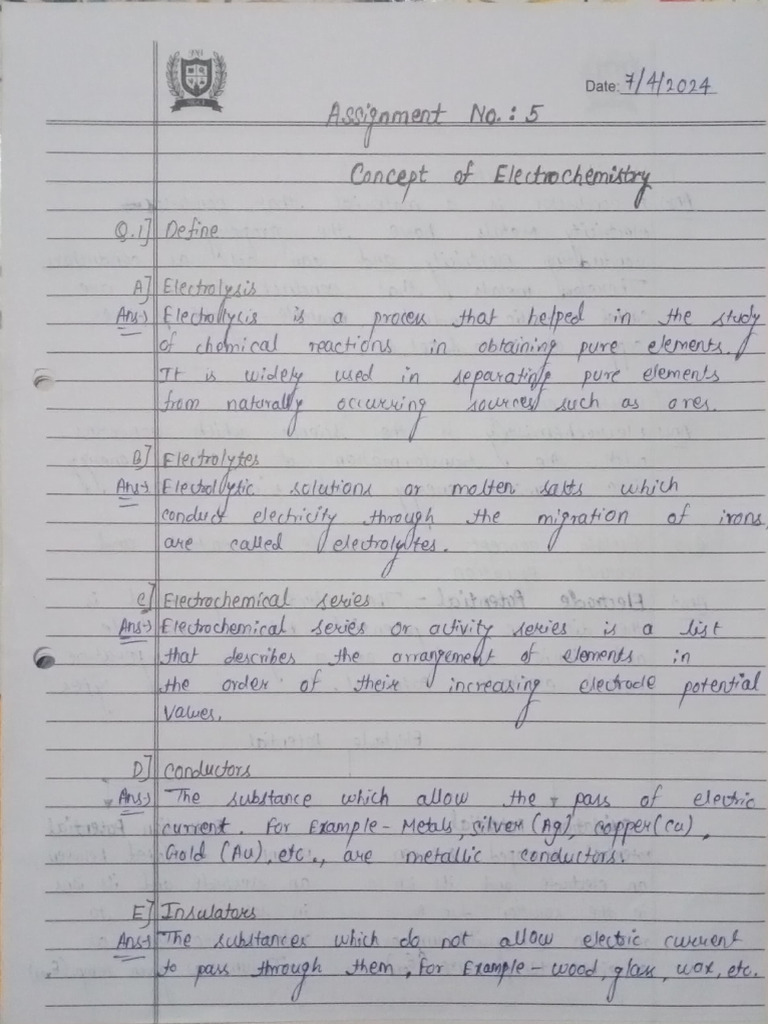 Date: 7/4/2024
Assignment No.: 5
Concept of Electrochemistry
Q.1] Define
A] Electrolysis
Ans-) Electrollycis is a process that helped in the study
of chemical reactions in obtaining pure elements.
It is widely used in separating pure elements
from naturally occurring sources such as ores.
B] Electrolytes
Ans-) Electrollytic solutions or molten salts which
conduct electricity through the migration of irons,
are called electrolytes.
C] Electrochemical series
Ans-) Electrochemical series or activity series is a list
that describes the arrangement of elements in
the order of their increasing electrode potential
values.
D] Conductors
Ans-) The substance which allow the pass of electric
current. For Example - Metals, silver (Ag), copper (Cu),
Gold (Au), etc., are metallic conductors.
E] Insulators
Ans-) The substances which do not allow electric current
to pass through them, For Example - wood, glass, wax, etc.